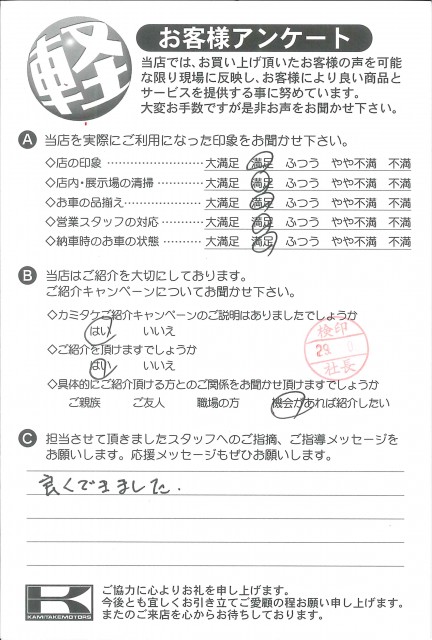 軽
お客様アンケート
当店では、お買い上げ頂いたお客様の声を可能
な限り現場に反映し、お客様により良い商品と
サービスを提供する事に努めています。
大変お手数ですが是非お声をお聞かせ下さい。
A 当店を実際にご利用になった印象をお聞かせ下さい。
◇店の印象 ………………… 大満足 満足 ふつう やや不満 不満
◇店内・展示場の清掃 ………… 大満足 満足 ふつう やや不満 不満
◇お車の品揃え ……………… 大満足 満足 ふつう やや不満 不満
◇営業スタッフの対応 ………… 大満足 満足 ふつう やや不満 不満
◇納車時のお車の状態 ………… 大満足 満足 ふつう やや不満 不満
B 当店はご紹介を大切にしております。
ご紹介キャンペーンについてお聞かせ下さい。
◇カミタケご紹介キャンペーンのご説明はありましたでしょうか
はい いいえ
◇ご紹介を頂けますでしょうか
はい いいえ
◇具体的にご紹介頂ける方とのご関係をお聞かせ頂けますでしょうか
ご親族 ご友人 職場の方 機会があれば紹介したい
検印
29.
社長
C 担当させて頂きましたスタッフへのご指摘、ご指導メッセージを
お願いします。応援メッセージもぜひお願いします。
良くできました.
K
KAMITAKEMOTORS
ご協力に心よりお礼を申し上げます。
今後とも宜しくお引き立てご愛顧の程お願い申し上げます。
またのご来店を心からお待ちしております。